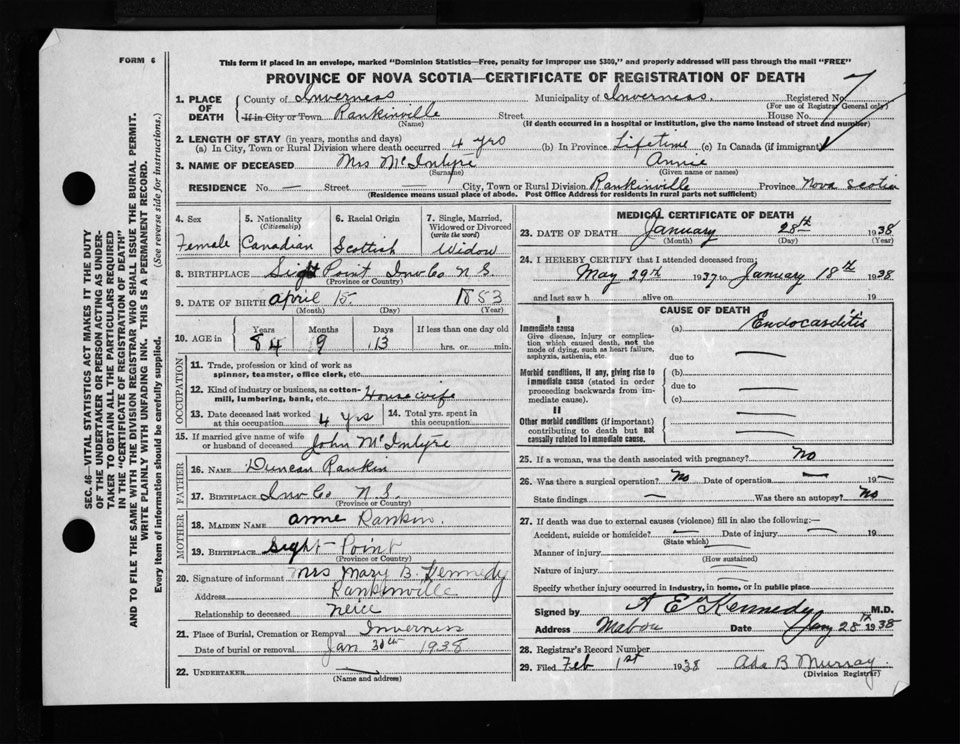 FORM 6
This form if placed in an envelope, marked "Dominion Statistics—Free, penalty for improper use $300," and properly addressed will pass through the mail "FREE"
PROVINCE OF NOVA SCOTIA—CERTIFICATE OF REGISTRATION OF DEATH
1. PLACE OF DEATH
County of Inverness Municipality of Inverness. Registered No. 7
(For use of Registrar General only)
If in City or Town Rankinville Street House No.
(Name) (If death occurred in a hospital or institution, give the name instead of street and number)
2. LENGTH OF STAY (in years, months and days)
(a) In City, Town or Rural Division where death occurred 4 yrs (b) In Province Lifetime (c) In Canada (if immigrant)
3. NAME OF DECEASED Mrs McIntyre Annie
(Surname) (Given name or names)
RESIDENCE No. — Street — City, Town or Rural Division Rankinville Province Nova Scotia
(Residence means usual place of abode. Post Office Address for residents in rural parts not sufficient)
4. Sex
Female
5. Nationality
(Citizenship)
Canadian
6. Racial Origin
Scottish
7. Single, Married, Widowed or Divorced
(write the word)
Widow
8. BIRTHPLACE Sight Point Inv. Co. N.S.
(Province or Country)
9. DATE OF BIRTH April 15 1853
(Month) (Day) (Year)
10. AGE in
Years Months Days If less than one day old
84 9 13 hrs. or min.
OCCUPATION
11. Trade, profession or kind of work as spinner, teamster, office clerk, etc.
12. Kind of industry or business, as cotton-mill, lumbering, bank, etc. Housewife
13. Date deceased last worked at this occupation. 4 yrs
14. Total yrs. spent in this occupation.
15. If married give name of wife or husband of deceased John McIntyre
FATHER
16. NAME Duncan Rankin
17. BIRTHPLACE Inv Co N.S.
(Province or Country)
MOTHER
18. MAIDEN NAME Anne Rankin.
19. BIRTHPLACE Sight Point
(Province or Country)
20. Signature of informant Mrs Mary B. Kennedy
Address Rankinville
Relationship to deceased neice
21. Place of Burial, Cremation or Removal Inverness
Date of burial or removal Jan 30th 1938
22. UNDERTAKER —
(Name and address)
MEDICAL CERTIFICATE OF DEATH
23. DATE OF DEATH January 28th 1938
(Month) (Day) (Year)
24. I HEREBY CERTIFY that I attended deceased from:
May 29th 1937 to January 18th 1938
and last saw h alive on 19
CAUSE OF DEATH
I
Immediate cause
Give disease, injury or complication which caused death, not the mode of dying, such as heart failure, asphyxia, asthenia, etc.
(a) Endocarditis
due to —
Morbid conditions, if any, giving rise to immediate cause (stated in order proceeding backwards from immediate cause).
(b) —
due to —
(c) —
II
Other morbid conditions (if important) contributing to death but not causally related to immediate cause.
25. If a woman, was the death associated with pregnancy? No
26. Was there a surgical operation? No Date of operation — 19 —
State findings — Was there an autopsy? No
27. If death was due to external causes (violence) fill in also the following:—
Accident, suicide or homicide? — Date of injury — 19
(State which)
Manner of injury —
(How sustained)
Nature of injury —
Specify whether injury occurred in Industry, in home, or in public place
Signed by A E Kennedy M.D.
Address Mabou Date Jany 28th 1938
28. Registrar's Record Number
29. Filed Feb 1st 1938 Ada B Murray
(Division Registrar)
SEC. 46—VITAL STATISTICS ACT MAKES IT THE DUTY OF THE UNDERTAKER OR PERSON ACTING AS UNDERTAKER TO OBTAIN ALL THE PARTICULARS REQUIRED IN THE "CERTIFICATE OF REGISTRATION OF DEATH"
AND TO FILE THE SAME WITH THE DIVISION REGISTRAR WHO SHALL ISSUE THE BURIAL PERMIT.
WRITE PLAINLY WITH UNFADING INK. THIS IS A PERMANENT RECORD.
Every item of information should be carefully supplied. (See reverse side for instructions).